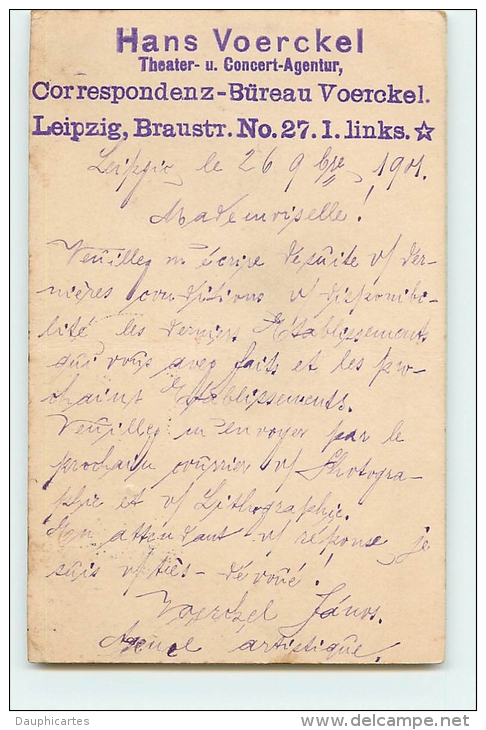 Hans Voerckel
Theater- u. Concert-Agentur,
Correspondenz-Büreau Voerckel.
Leipzig, Braustr. No. 27. I. links. ☆
Leipzig le 26 9bre 1901.
Mademoiselle!
Veuillez m'écrire de suite v/ der-
nières conditions v/ disponibi-
lité les derniers Etablissements
qui vous avez faits et les pro-
chains Etablissements.
Veuillez m'envoyer par le
prochain courrier v/ Photogra-
phie et v/ Lithographie.
En attendant v/ réponse, je
suis v/ très-dévoué!
Voerckel János.
Agence artistique.
Dauphicartes
delcampe.net